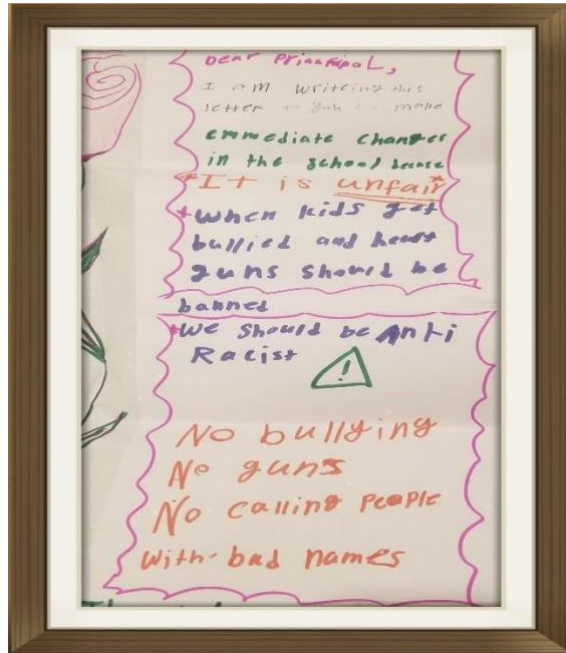 Dear Principal,
I am writeing this
letter to you to make
emmediate changes
in the school becuse
*It is unfair*
*When kids get
bullied and heart
guns should be
banned
*We should be Anti
Racist
!
No bullying
No guns
No calling People
with-bad names